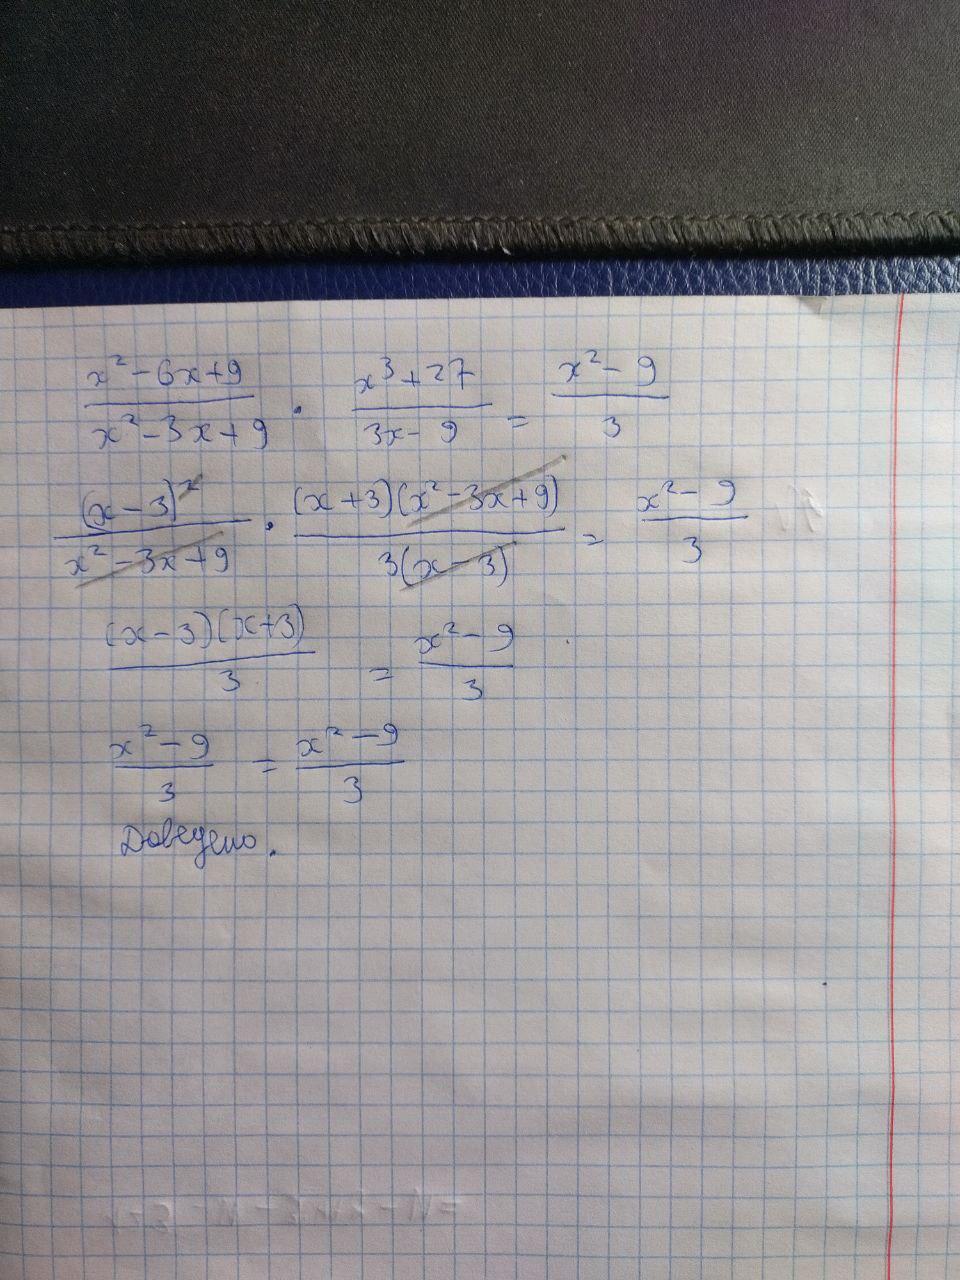 x² - 6x + 9 / x² - 3x + 9 · x³ + 27 / 3x - 9 = x² - 9 / 3
(x - 3)² / x² - 3x + 9 · (x + 3)(x² - 3x + 9) / 3(x - 3) = x² - 9 / 3
(x - 3)(x + 3) / 3 = x² - 9 / 3
x² - 9 / 3 = x² - 9 / 3
Доведено.